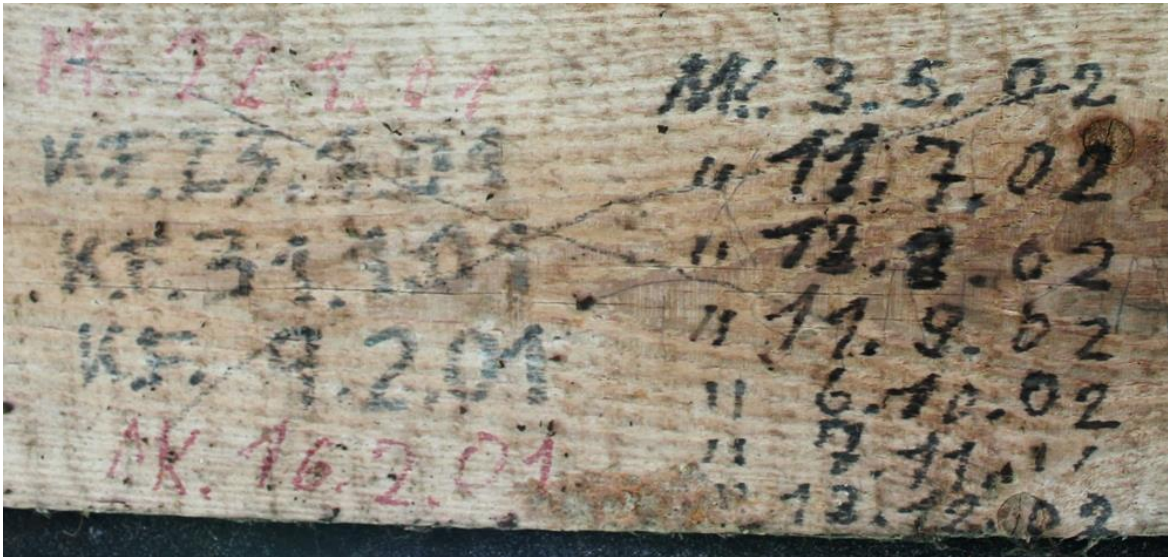 MK. 22.1.01
KF. 25.1.01
KF. 31.1.01
KF. 9.2.01
MK. 16.2.01
MK. 3.5.02
" 11.7.02
" 12.8.02
" 11.9.02
" 6.10.02
" 7.11. "
" 12.12.02